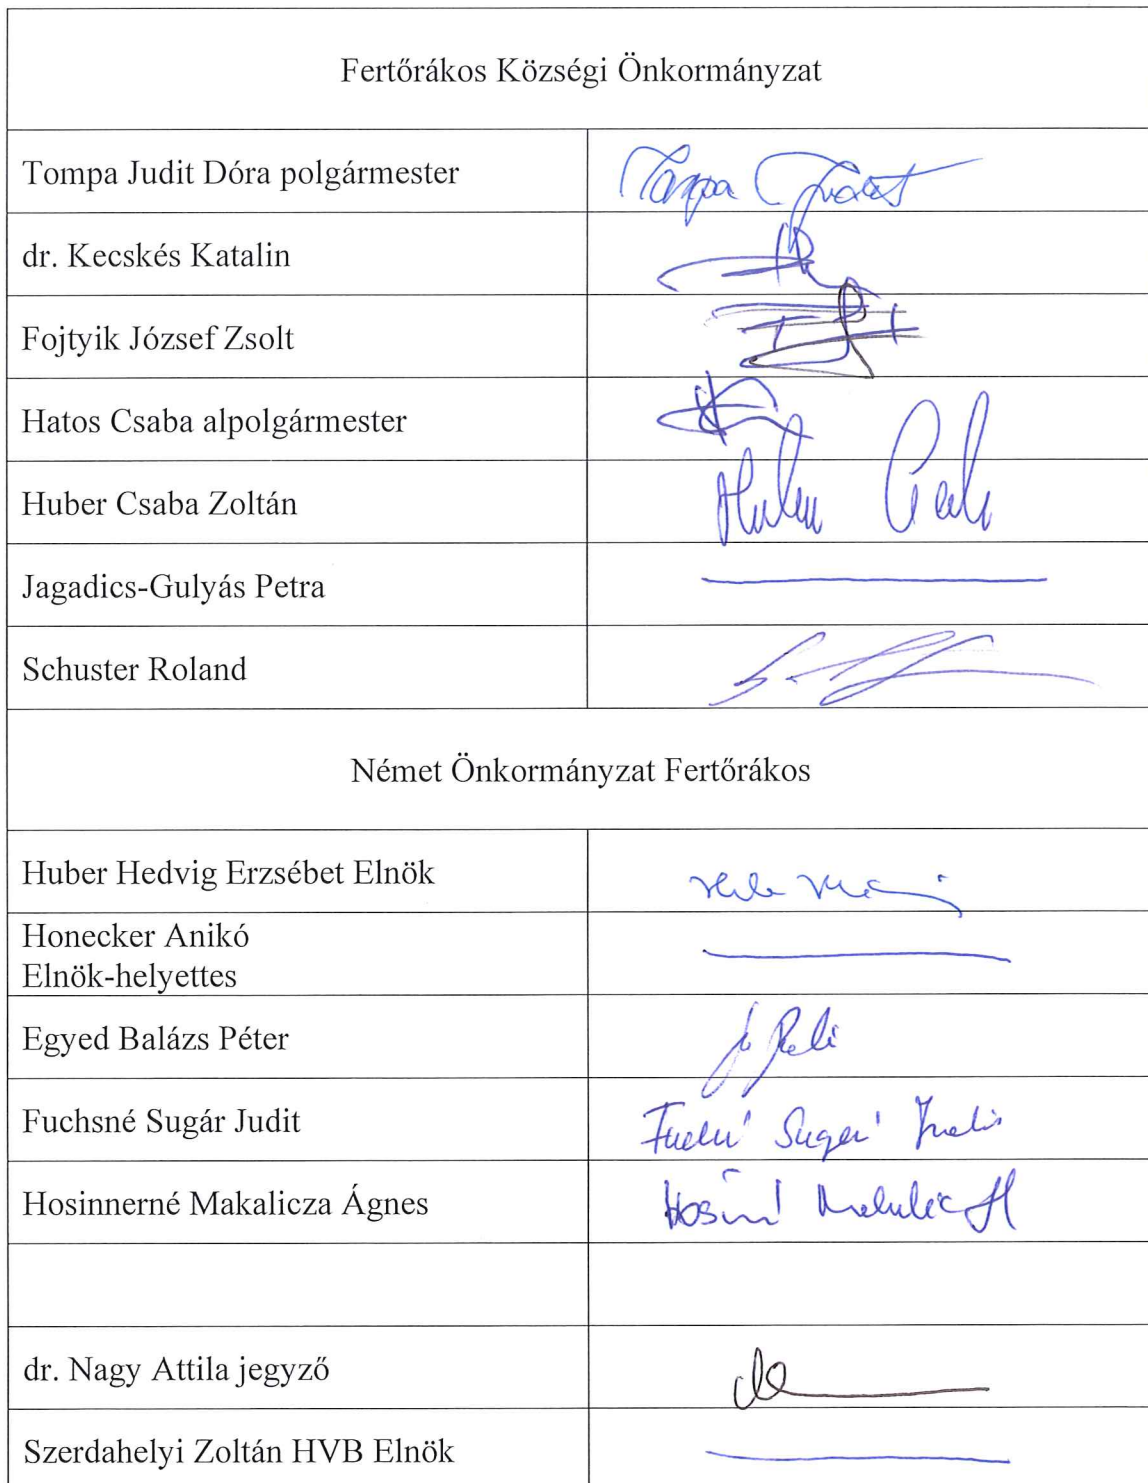 Fertőrákos Községi Önkormányzat
Tompa Judit Dóra polgármester
Tompa Judit
dr. Kecskés Katalin
Fojtyik József Zsolt
Hatos Csaba alpolgármester
Huber Csaba Zoltán
Huber
Jagadics-Gulyás Petra
Schuster Roland
Német Önkormányzat Fertőrákos
Huber Hedvig Erzsébet Elnök
Honecker Anikó
Elnök-helyettes
Egyed Balázs Péter
Fuchsné Sugár Judit
Hosinnerné Makalicza Ágnes
dr. Nagy Attila jegyző
Szerdahelyi Zoltán HVB Elnök